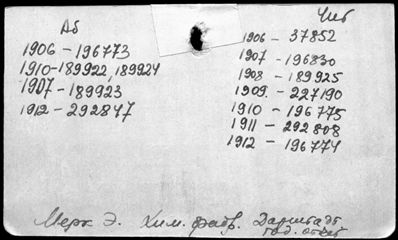 Аб
1906 - 196773
1910 - 189922, 189924
1907 - 189923
1912 - 292847
Чит
1906 - 37852
1907 - 196830
1908 - 189925
1909 - 227190
1910 - 196775
1911 - 292808
1912 - 196774
Мерк Э. Хим. фабр. Дармштадт
год. отчет